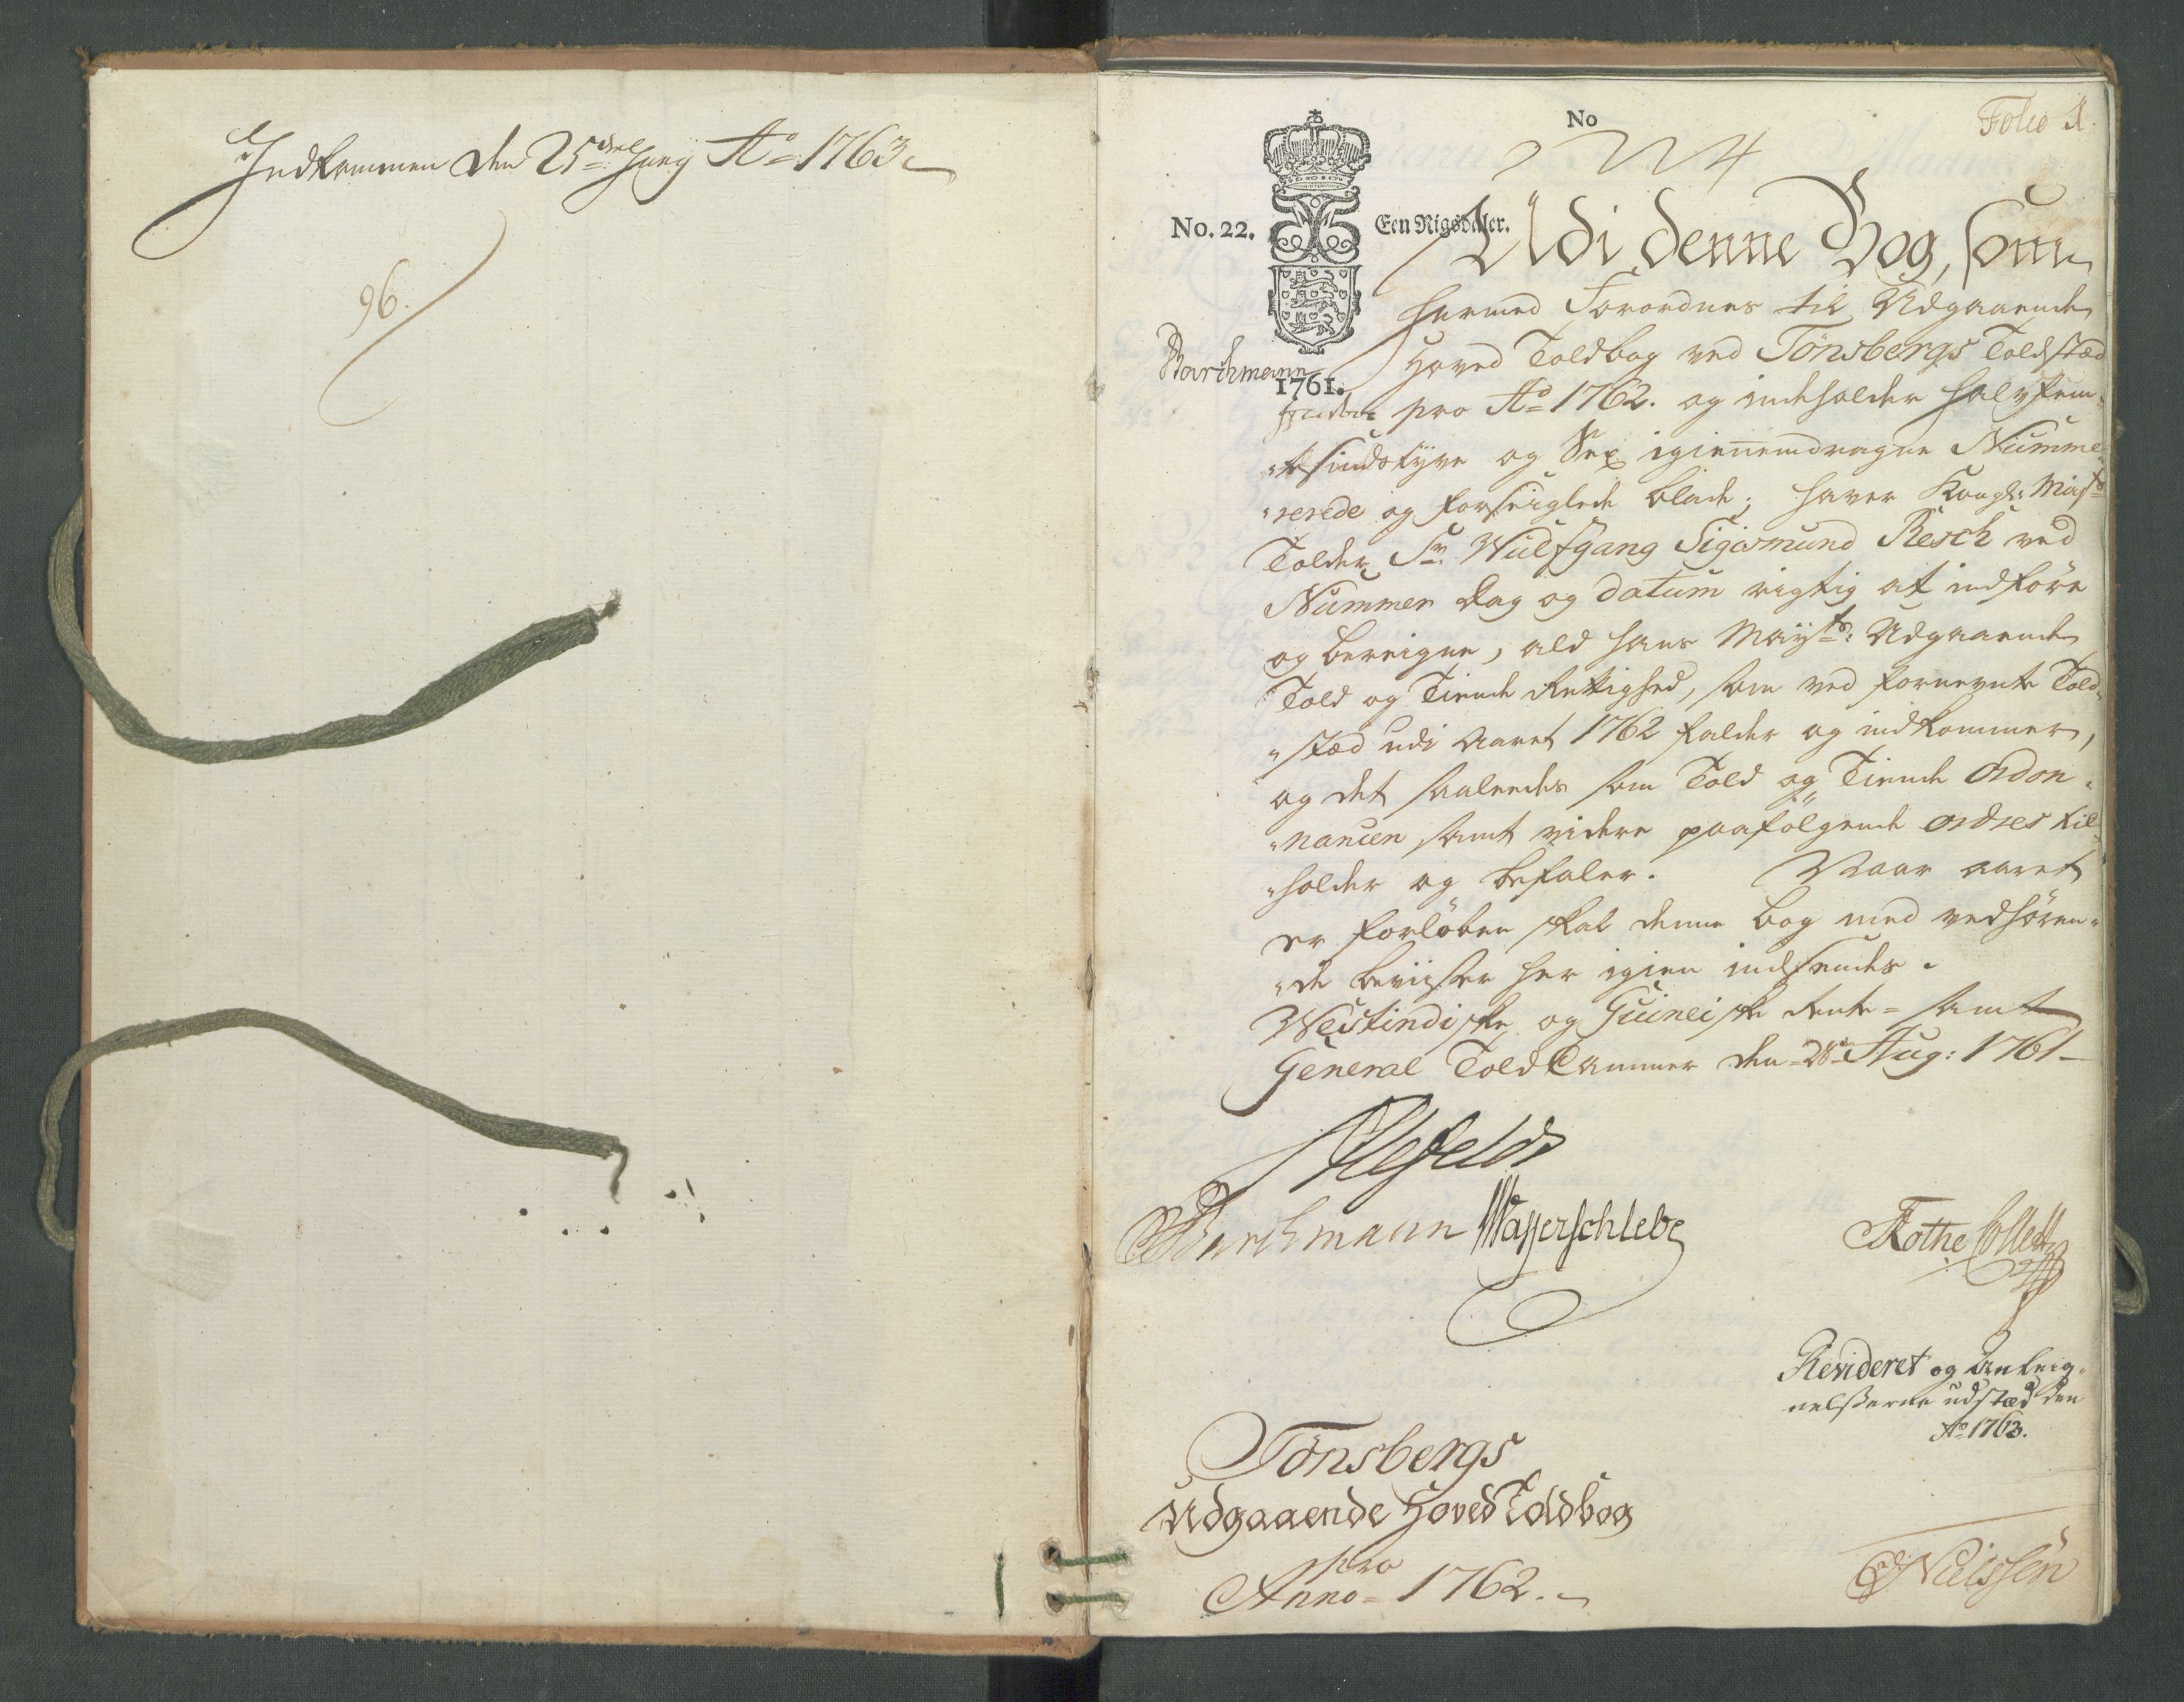 Indkommen den 25de Junÿ Ao 1763
96.
Folio 1.
No
224
No. 22.
Een Rigsdaler.
Udi denne Bog, som
hermed Forordnes til Udgaaende
Hoved Toldbog ved Tönsbergs Toldstæd
Barthmann
1761.
pro Ao 1762. og indeholder halvfem„
„tesindstyve og Sex igiennemdragne Numme„
„rerede og forseiglede blade; haver Kongl: Maÿts
Tolder Sr. Wulfgang Sigismund Resch ved
Nummer Dag og Datum rigtig at indföre
og bereigne, ald hans Maÿts: Udgaaende
Told og Tiende Rettighed, som ved fornevnte Told„
„stæd udi Aaret 1762 falder og indkommer,
og det saaleedes som Told og Tiende Ordon„
„nancen samt videre paafölgende ordres til„
„holder og befaler. Naar aaret
er forlöben skal denne bog med vedhören„
„de beviiser her igien indsendes.
Westindiske og Guineiske Rente= samt
General ToldCammer den 28de Aug: 1761
Ahlefeldt
Barthmann Wasserschlebe
Rothe Collett
Revideret og Anteig„
nelsserne udstæd den
Ao 1763.
Tönsbergs
Udgaaende Hoved Toldbog
pro
Anno= 1762.
Nielssen